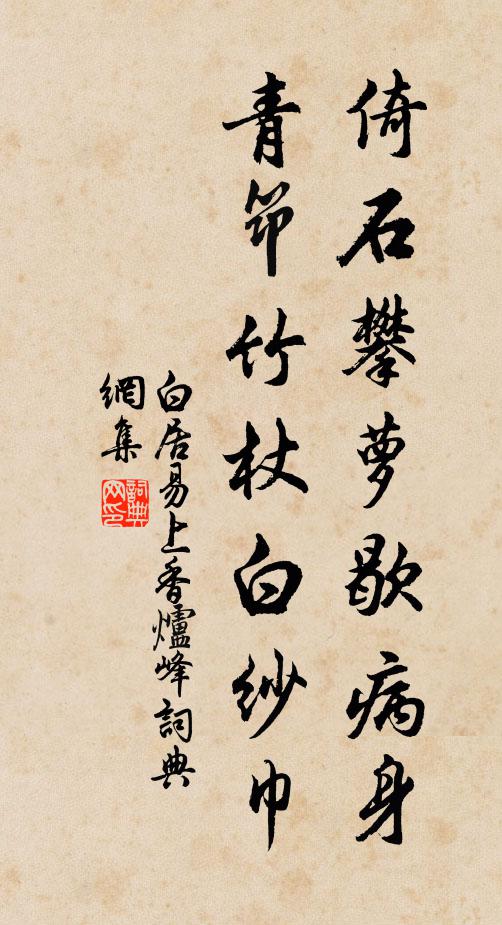 倚石攀萝歇病身
青筇竹杖白紗巾
白居易上香爐峰詞典
網集
詞典
网印